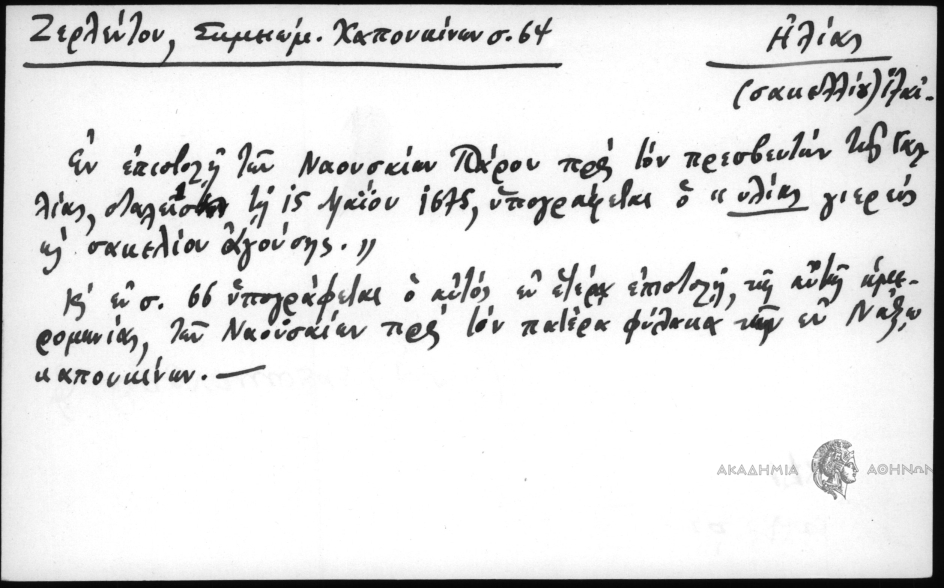 Ζερλέντου, Σημειώμ. Καπουκίνων σ. 64
Ἠλίας
(σακελλίου)
Ἐν ἐπιστολῇ τῶν Ναουσαίων Πάρου πρὸς τὸν πρεσβευτὴν τῆς Γαλ-
λίας, σταλείσῃ τῇ 15 Μαΐου 1675, ὑπογράφεται ὁ "υλίας γιερεύς
κὲ σακελίου ἀγούσης."
Κ' ἐν σ. 66 ὑπογράφεται ὁ αὐτός ἐν ἑτέρᾳ ἐπιστολῇ, τῆς αὐτῆς ἡμε-
ρομηνίας, τῶν Ναουσαίων πρὸς τὸν πατέρα φύλακα τῶν ἐν Νάξῳ
καπουκίνων. —
ΑΚΑΔΗΜΙΑ ΑΘΗΝΩΝ